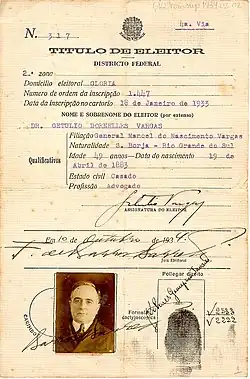 4a. Via
N. 317
TITULO DE ELEITOR
DISTRICTO FEDERAL
2.ª zona
Domicilio eleitoral GLORIA
Numero de ordem da inscripção 1.447
Data da inscripção no cartorio 18 de Janeiro de 1933
NOME E SOBRENOME DO ELEITOR (por extenso)
DR. GETULIO DORNELLES VARGAS
Qualificativos
Filiação General Manoel do Nascimento Vargas
Naturalidade S. Borja - Rio Grande do Sul
Idade 49 annos - Data do nascimento 19
de Abril de 1883
Estado civil Casado
Profissão Advogado
Getulio Vargas
ASSIGNATURA DO ELEITOR
Em 10 de Outubro de 1934.
Juiz Eleitoral
Pollegar direito
CARIMBO
Formula
dactyloscopica
V 2222